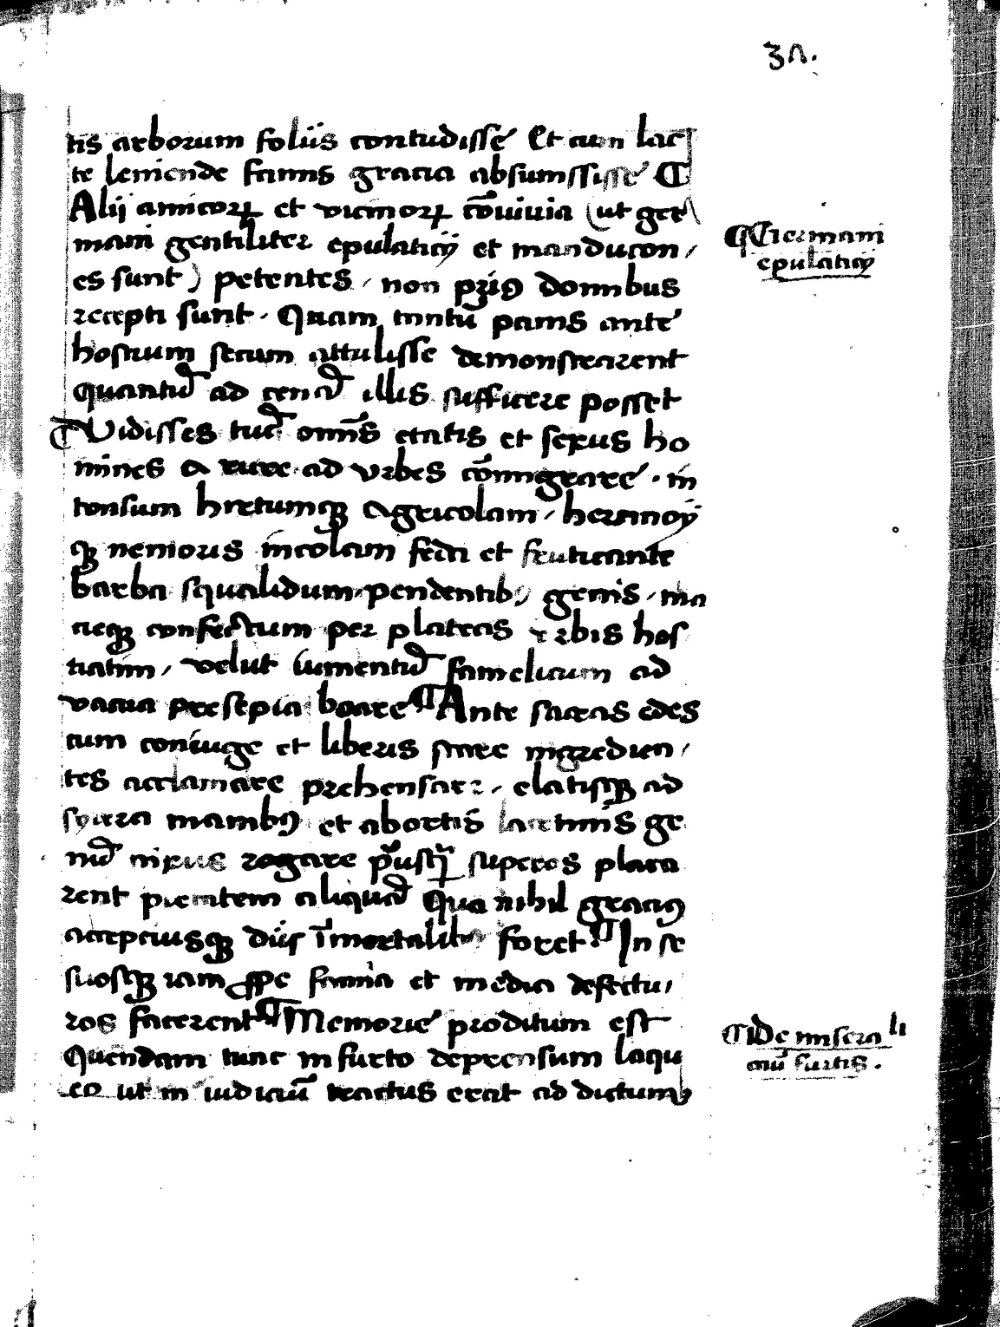 31.
tis arborum foliis contudisse Et cum lac
te leniende famis gracia absumsisse ¶
Alij amicorꝝ et vicinorꝝ cōuiuia (ut ger
mani gentiliter epulaticij et manducon
es sunt) petentes, non priꝰ domibus
recepti sunt. Quam tantū panis ante
hostium secum attulisse demonstrarent
quantū ad cenā illis sufficere posset
¶ Vidisses tūc omīs etatis et sexus ho
mines a rure ad vrbes cōmigrare. in
tonsum hirtumqꝫ agricolam, heremoꝝ
qꝫ nemoris incolam feda et fruticante
barba squalidum pendentibꝰ genis, ma
cieqꝫ confectum per plateas vrbis hos
tiatim, velut iumentū famelicum ad
vacua presepia boare ¶ Ante sacras edes
cum coniuge et liberis stare ingredien,
tes acclamare prehensare, elatisqꝫ ad
sydera manibꝰ et abortis lacrimis ge
nuū nixus rogare
superos placa
rent pietatem aliquā Qua nihil graciꝰ
accepciusqꝫ diis īmortalibꝰ foret ¶ In se
suosqꝫ iam ꝓpe famia et media defectu,
ros facerent ¶ Memorie proditum est
Quendam tunc in furto deprensum laqu
eo ut in iudiciū tractus erat addictum
¶ Germani
epulaticij
¶ De misera li
ciū furtis.